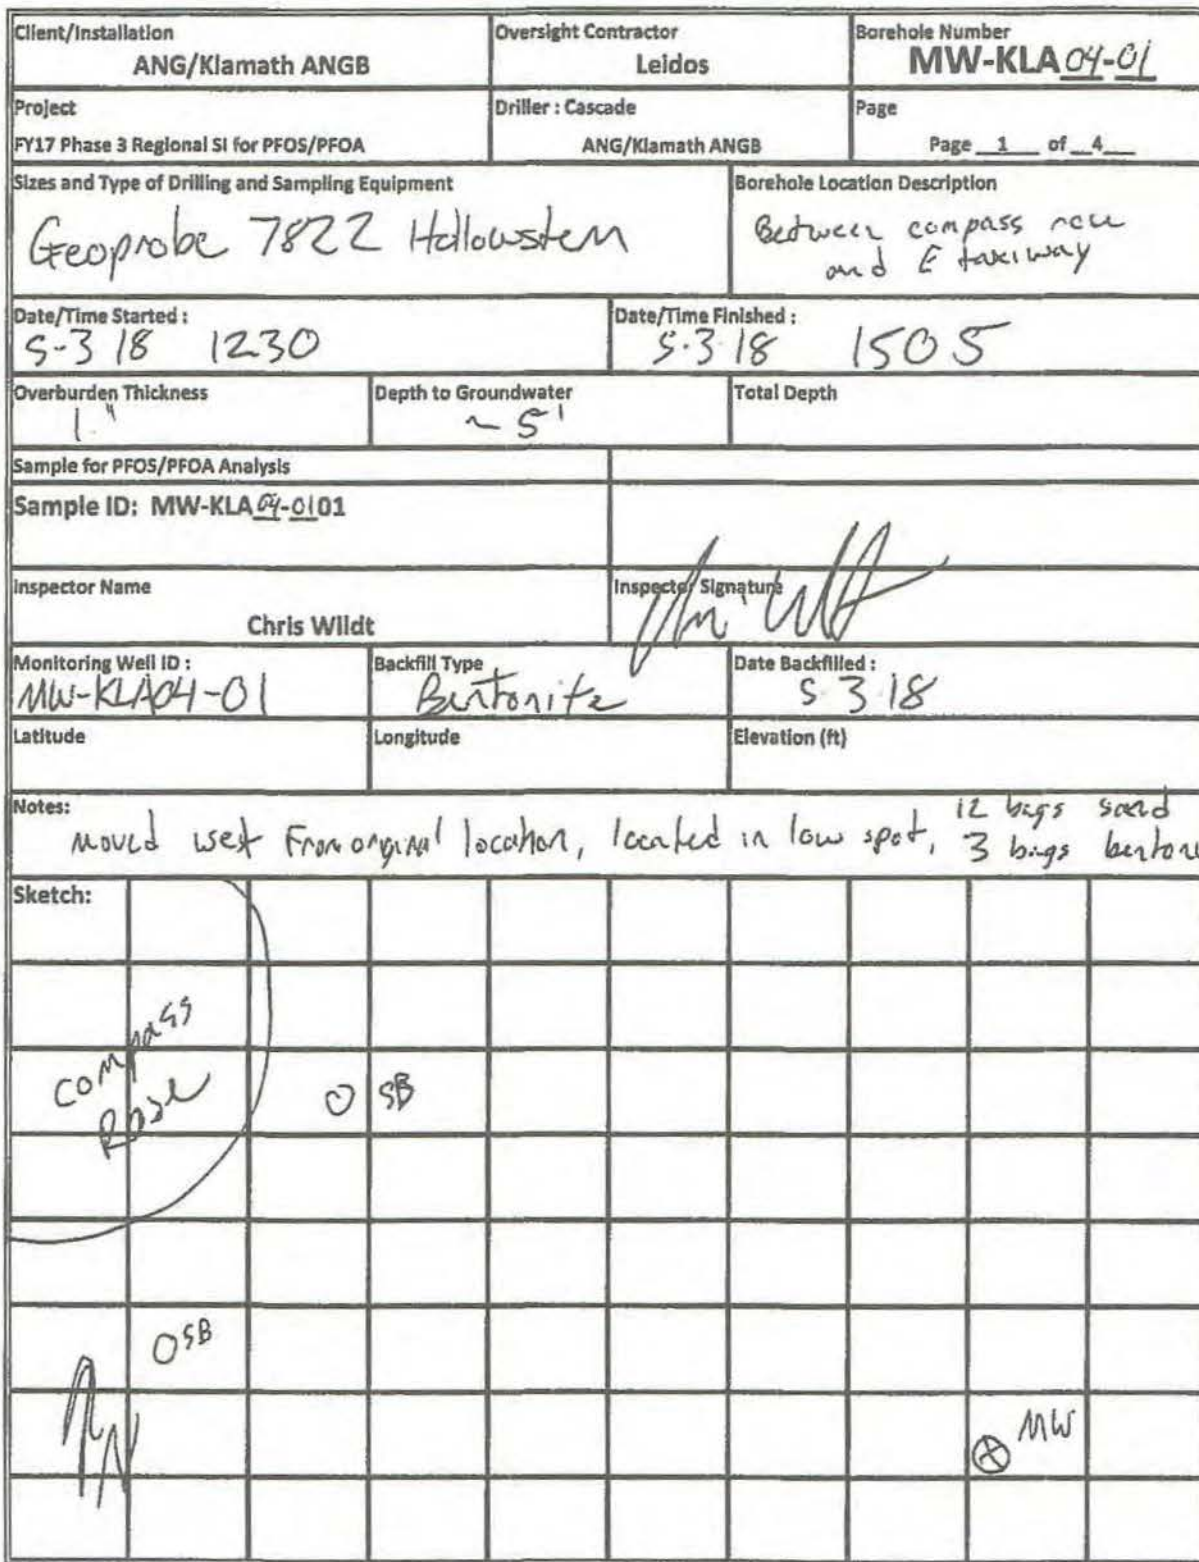 Client/Installation
ANG/Klamath ANGB
Oversight Contractor
Leidos
Borehole Number
MW-KLA 04-01
Project
FY17 Phase 3 Regional SI for PFOS/PFOA
Driller : Cascade
ANG/Klamath ANGB
Page
Page 1 of 4
Sizes and Type of Drilling and Sampling Equipment
Geoprobe 7822 Hollowstem
Borehole Location Description
Between compass rose
and E taxiway
Date/Time Started :
5-3 18 1230
Date/Time Finished :
5.3 18 1505
Overburden Thickness
1"
Depth to Groundwater
~ 5'
Total Depth
Sample for PFOS/PFOA Analysis
Sample ID: MW-KLA 04-0101
Inspector Name
Chris Wildt
Inspector Signature
Monitoring Well ID :
MW-KLA04-01
Backfill Type
Bentonite
Date Backfilled :
5 3 18
Latitude
Longitude
Elevation (ft)
Notes:
12 bags sand
moved west From original location, located in low spot, 3 bags benton
Sketch:
Compass
Rose
SB
SB
N
MW